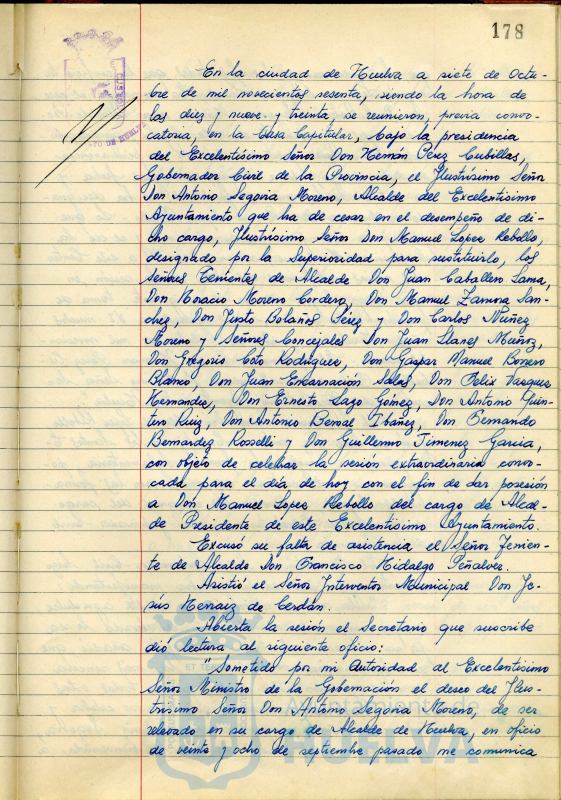 178
En la ciudad de Huelva a siete de Octu-
bre de mil novecientos sesenta, siendo la hora de
las diez y nueve y treinta, se reunieron, previa convo-
catoria, en la Casa Capitular, bajo la presidencia
del Excelentísimo Señor Don Hernán Pérez Cubillas,
Gobernador Civil de la Provincia, el Ilustrísimo Señor
Don Antonio Segovia Moreno, Alcalde del Excelentísimo
Ayuntamiento que ha de cesar en el desempeño de di-
cho cargo, Ilustrísimo Señor Don Manuel Lopez Rebollo,
designado por la Superioridad para sustituirlo, los
Señores Tenientes de Alcalde Don Juan Caballero Lama,
Don Horacio Moreno Cordero, Don Manuel Zamora San-
chez, Don Justo Bolaños Pérez y Don Carlos Nuñez
Moreno y Señores Concejales Don Juan Llanes Muñoz,
Don Gregorio Coto Rodriguez, Don Gaspar Manuel Romero
Blanco, Don Juan Encarnación Salas, Don Felix Vazquez
Hernandez, Don Ernesto Lazo Gómez, Don Antonio Quin-
tero Ruiz, Don Antonio Bernal Ibañez, Don Fernando
Bernardez Rosselli y Don Guillermo Jimenez Garcia,
con objeto de celebrar la sesión extraordinaria convo-
cada para el día de hoy con el fin de dar posesión
a Don Manuel Lopez Rebollo del cargo de Alcal-
de Presidente de este Excelentísimo Ayuntamiento.
Excusó su falta de asistencia el Señor Tenien-
te de Alcalde Don Francisco Hidalgo Peñalver.
Asistió el Señor Interventor Municipal Don Je-
sús Herraiz de Cerdán.
Abierta la sesión el Secretario que suscribe
dió lectura al siguiente oficio:
"Sometido por mi Autoridad al Excelentisimo
Señor Ministro de la Gobernación el deseo del Ilus-
trisimo Señor Don Antonio Segovia Moreno, de ser
relevado en su cargo de Alcalde de Huelva, en oficio
de veinte y ocho de septiembre pasado me comunica
HUELVA